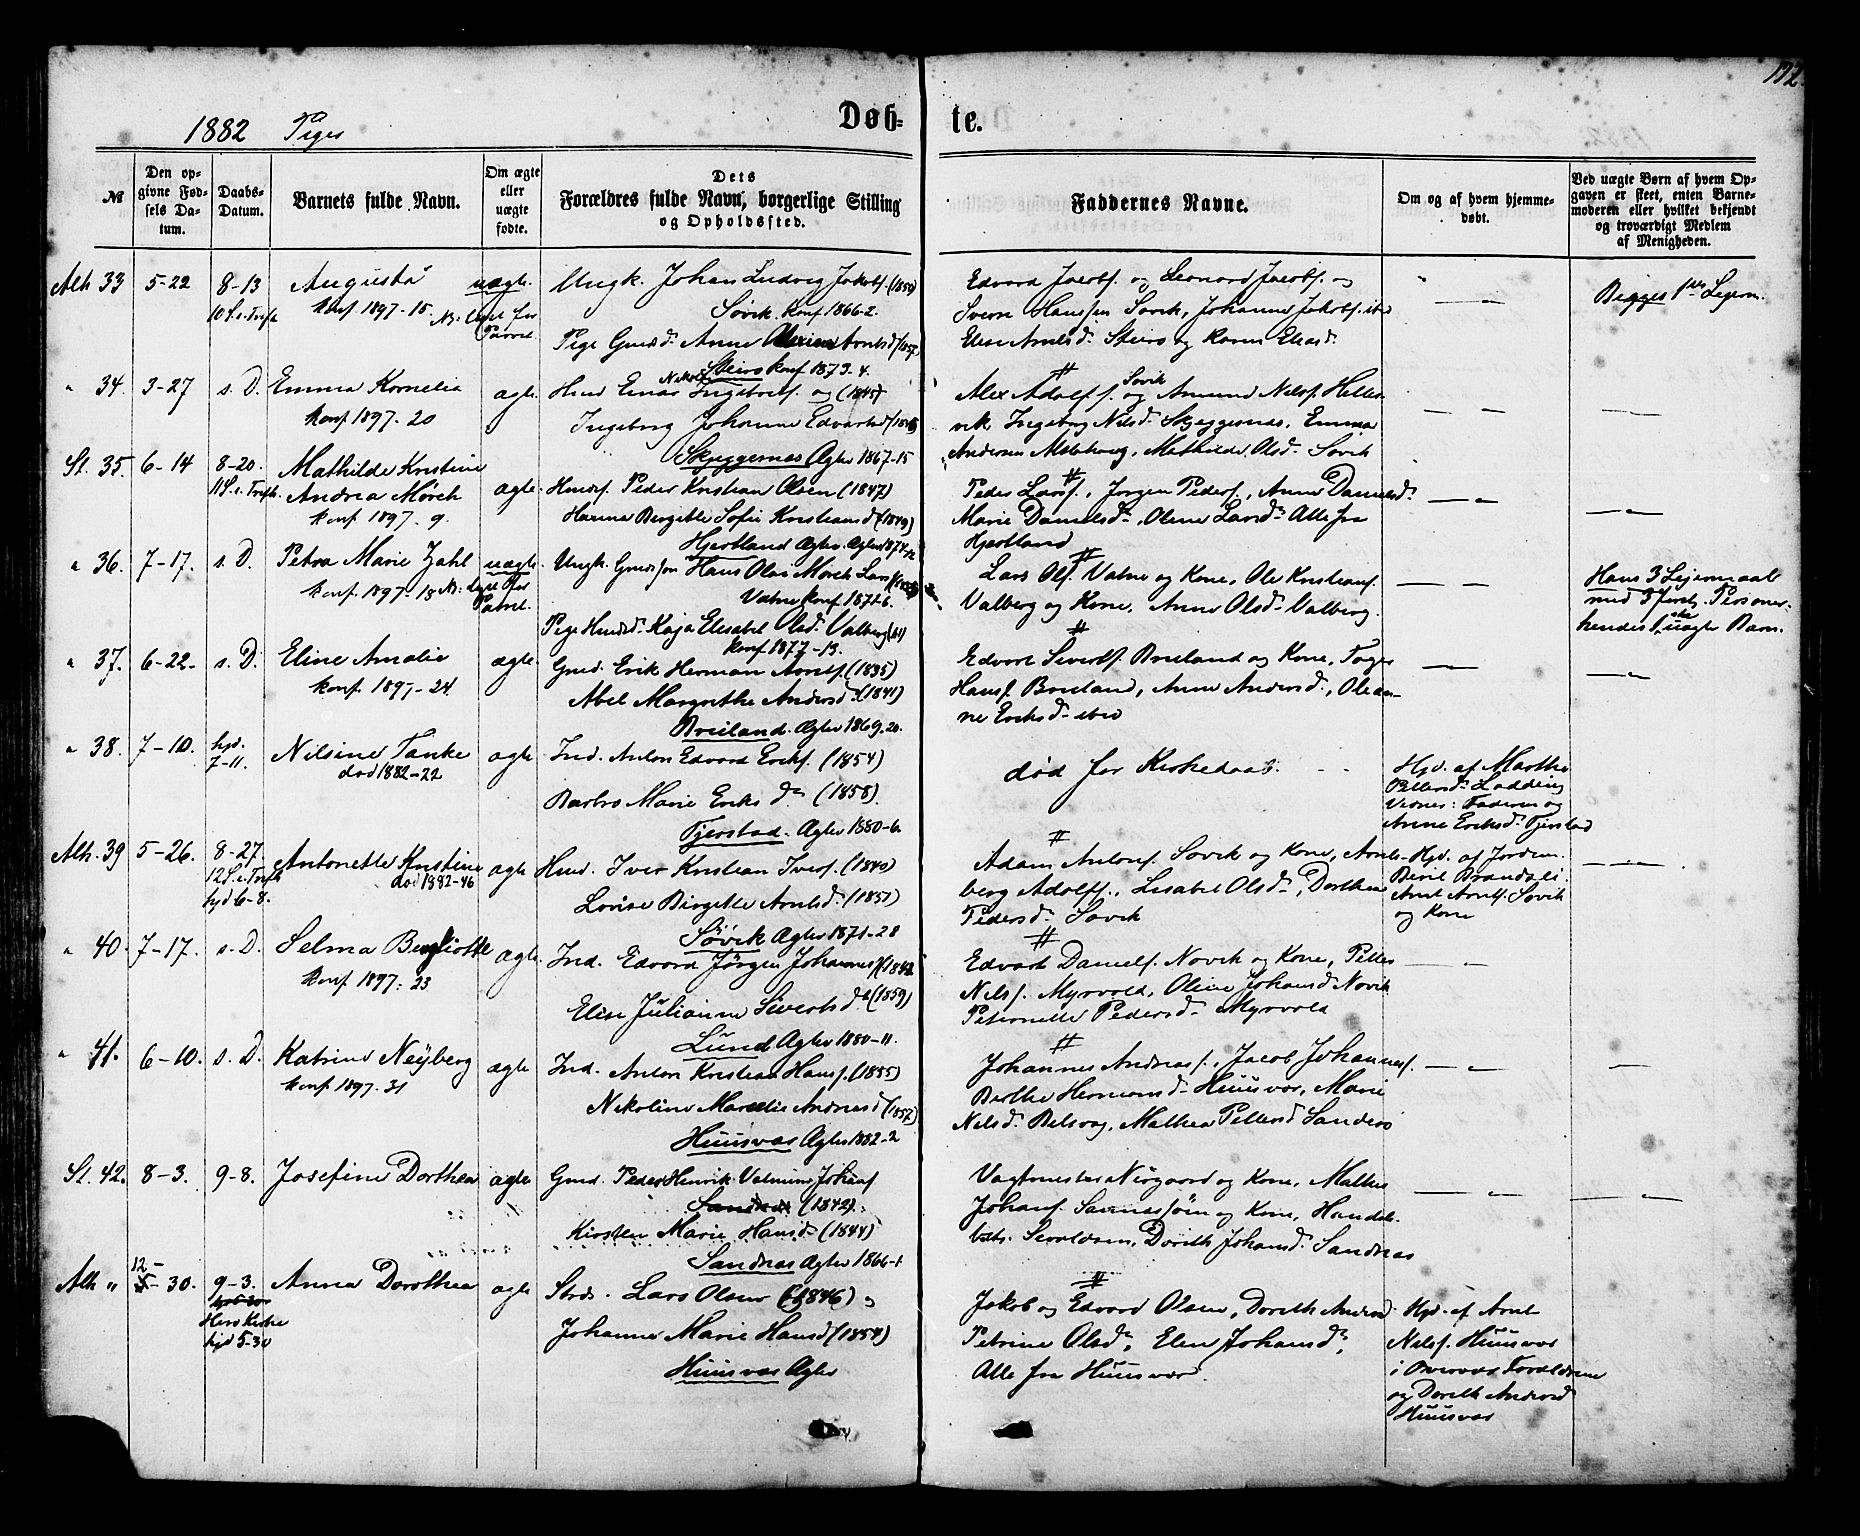 172.
1882 Piger
Døb-
te.
№
Den op-
givne Fød-
sels Da-
tum.
Daabs-
Datum.
Barnets fulde Navn.
Om ægte
eller
uægte
fødte.
Dets
Forældres fulde Navn, borgerlige Stilling
og Opholdssted.
Faddernes Navne.
Om og af hvem hjemme-
døbt.
Ved uægte Børn af hvem Op-
gaven er skeet, enten Barne-
moderen eller hvilket bekjendt
og troværdigt Medlem
af Menigheden.
Alh 33 5-22 8-13 Augusta uægte. Ungk. Johan Ludvig Jakobs. (1850)
10 S. e. Trefh konf 1897-15
Søvik. konf 1866-2.
Pige Gmdsd. Anne Arntsd (1857)
Steiro konf 1873-4.
Edvard Jacobs. og Leonard Jacobs. og
Sverre Hanssen Søvik, Johanne Jakobs.
Elise Arntsd. Steiro og Karen Eliasd.
Begges 1ste Lejerm.
" 34. 3-27 s. D. Emma Kornelia ægte. Hmd Einar Nikolai Ingebrets. og (1845)
konf 1897-20
Ingeborg Johanne Edvartsd
Skjeggesnes Agtev 1867-15
Alex Adolfs. Søvik og Amund Nilss. Helles-
vik, Ingeborg Nilsd. Skjeggesnes, Emma
Andersen Alstahoug, Mathilde Olsd. Søvik
St. 35. 6-14 8-20. Mathilde Kristine
11 S. e. Trefh. Andrea Mörch ægte. Hmds. Peder Kristian Olsen (1847)
konf 1897-9.
Hanna Bergitte Sofie Kristiansd (1849)
Hjertland Agtev. 1871-12
Peder Larss., Jørgen Peders., Anne Danielsd.
Marie Danielsd., Oline Larsd. Alle fra
Hjertland
" 36. 7-17. s. D. Petra Marie Zahl uægte. Ungk. Gmdssøn Hans Olai Mörch Lars
konf 1897-18
Vatne konf 1871-6.
Pige Hmdsd. Kaja Elisabet Olsd. Valberg (61)
konf 1877-13.
Lars Ols. Vatne og Kone, Ole Kristians.
Valberg og Kone, Anne Olsd. Valberg.
Hans 3 Lejermaal
med 3 forsk. Personer.
hendes 1ste uægte Barn.
" 37. 6-22. s. D. Eline Amalie ægte. Gmd. Erik Herman Arnts. (1835)
konf 1897-24.
Abel Margrethe Andersd. (1841)
Breiland. Agtev 1869-20.
Edvart Siverts. Breiland og Kone, Tøger
Hanss. Breiland, Anne Andersd., Olean-
ne Eriksd. ibid
" 38. 7-10. hjd. 7-11. Nilsine Tanke ægte Ind. Anton Edvard Eriks. (1854)
død 1882-22
Barbro Marie Eriksd. (1858).
Tjerstad. Agtev 1880-6.
død før Kirkedaab.
Hjd. af Marthe
Pettersd. Lodding
Vidner: Faderen og
Anne Eriksd. Tjerstad
Alh. 39 5-26. 8-27. Antonette Kristine ægte Hmd. Iver Kristian Ivers. (1840)
12 S. e. Trefh død 1882-46
hjd 6-8.
Lovise Birgitte Arntsd. (1851)
Søvik Agtev 1871-28
Adam Antons. Søvik og Kone, Arnte-
berg Adolfs., Lisabet Olsd., Dorthea
Pedersd. Søvik
Hjd. af Jordem.
Berit Brandsli.
Arnt Arnts. Søvik
og Kone
" 40. 7-17. s. D. Selma Bergliotte ægte. Ind. Edvard Jørgen Johanness (1842
konf 1897-23
Elise Julianne Sivertsd. (1859)
Lund Agtev 1880-11.
Edvart Daniels. Novik og Kone, Petter
Nilss. Myrvold, Oline Johansd Novik
Petronelle Pedersd. Myrvold
" 41. 6-10. s. D. Katrine Neÿberg ægte Ind. Anton Kristian Hanss. (1855)
konf 1897-31
Nikoline Andreasd (1857)
Huusvær Agtev 1882-2
Johannes Andreass., Jacob Johanness.
Berthe Hermansd. Huusvær, Marie
Nilsd. Belsvaag, Mathea Pettersd. Sandvær
St. 42. 8-3. 9-8. Josefine Dorthea ægte Gmd. Peder Henrik Johans
Sandnes (1842).
Kirsten Marie Hansd. (1844)
Sandnes Agtev 1866-1
Vagtmester Nörgaard og Kone, Mathis
Johans. Sannessjöen og Kone, Handels-
betj. Sevaldsen, Dorith Johansd. Sandnes
Alh " 12-30. 9-3. Anna Dorothea ægte Strds. Lars Olsen (1846) og
Herø Kirke
hjd 5-30
Johanne Marie Hansd (1854)
Huusvær Agtev
Jakob og Edvard Olsen, Dorith Andersd
Petrine Olsd., Elen Johansd.,
Alle fra Huusvær.
Hjd. af Arnt
Nilss. Huusvær
i Overvær Forældrene
og Dorith Andersd
Huusvær